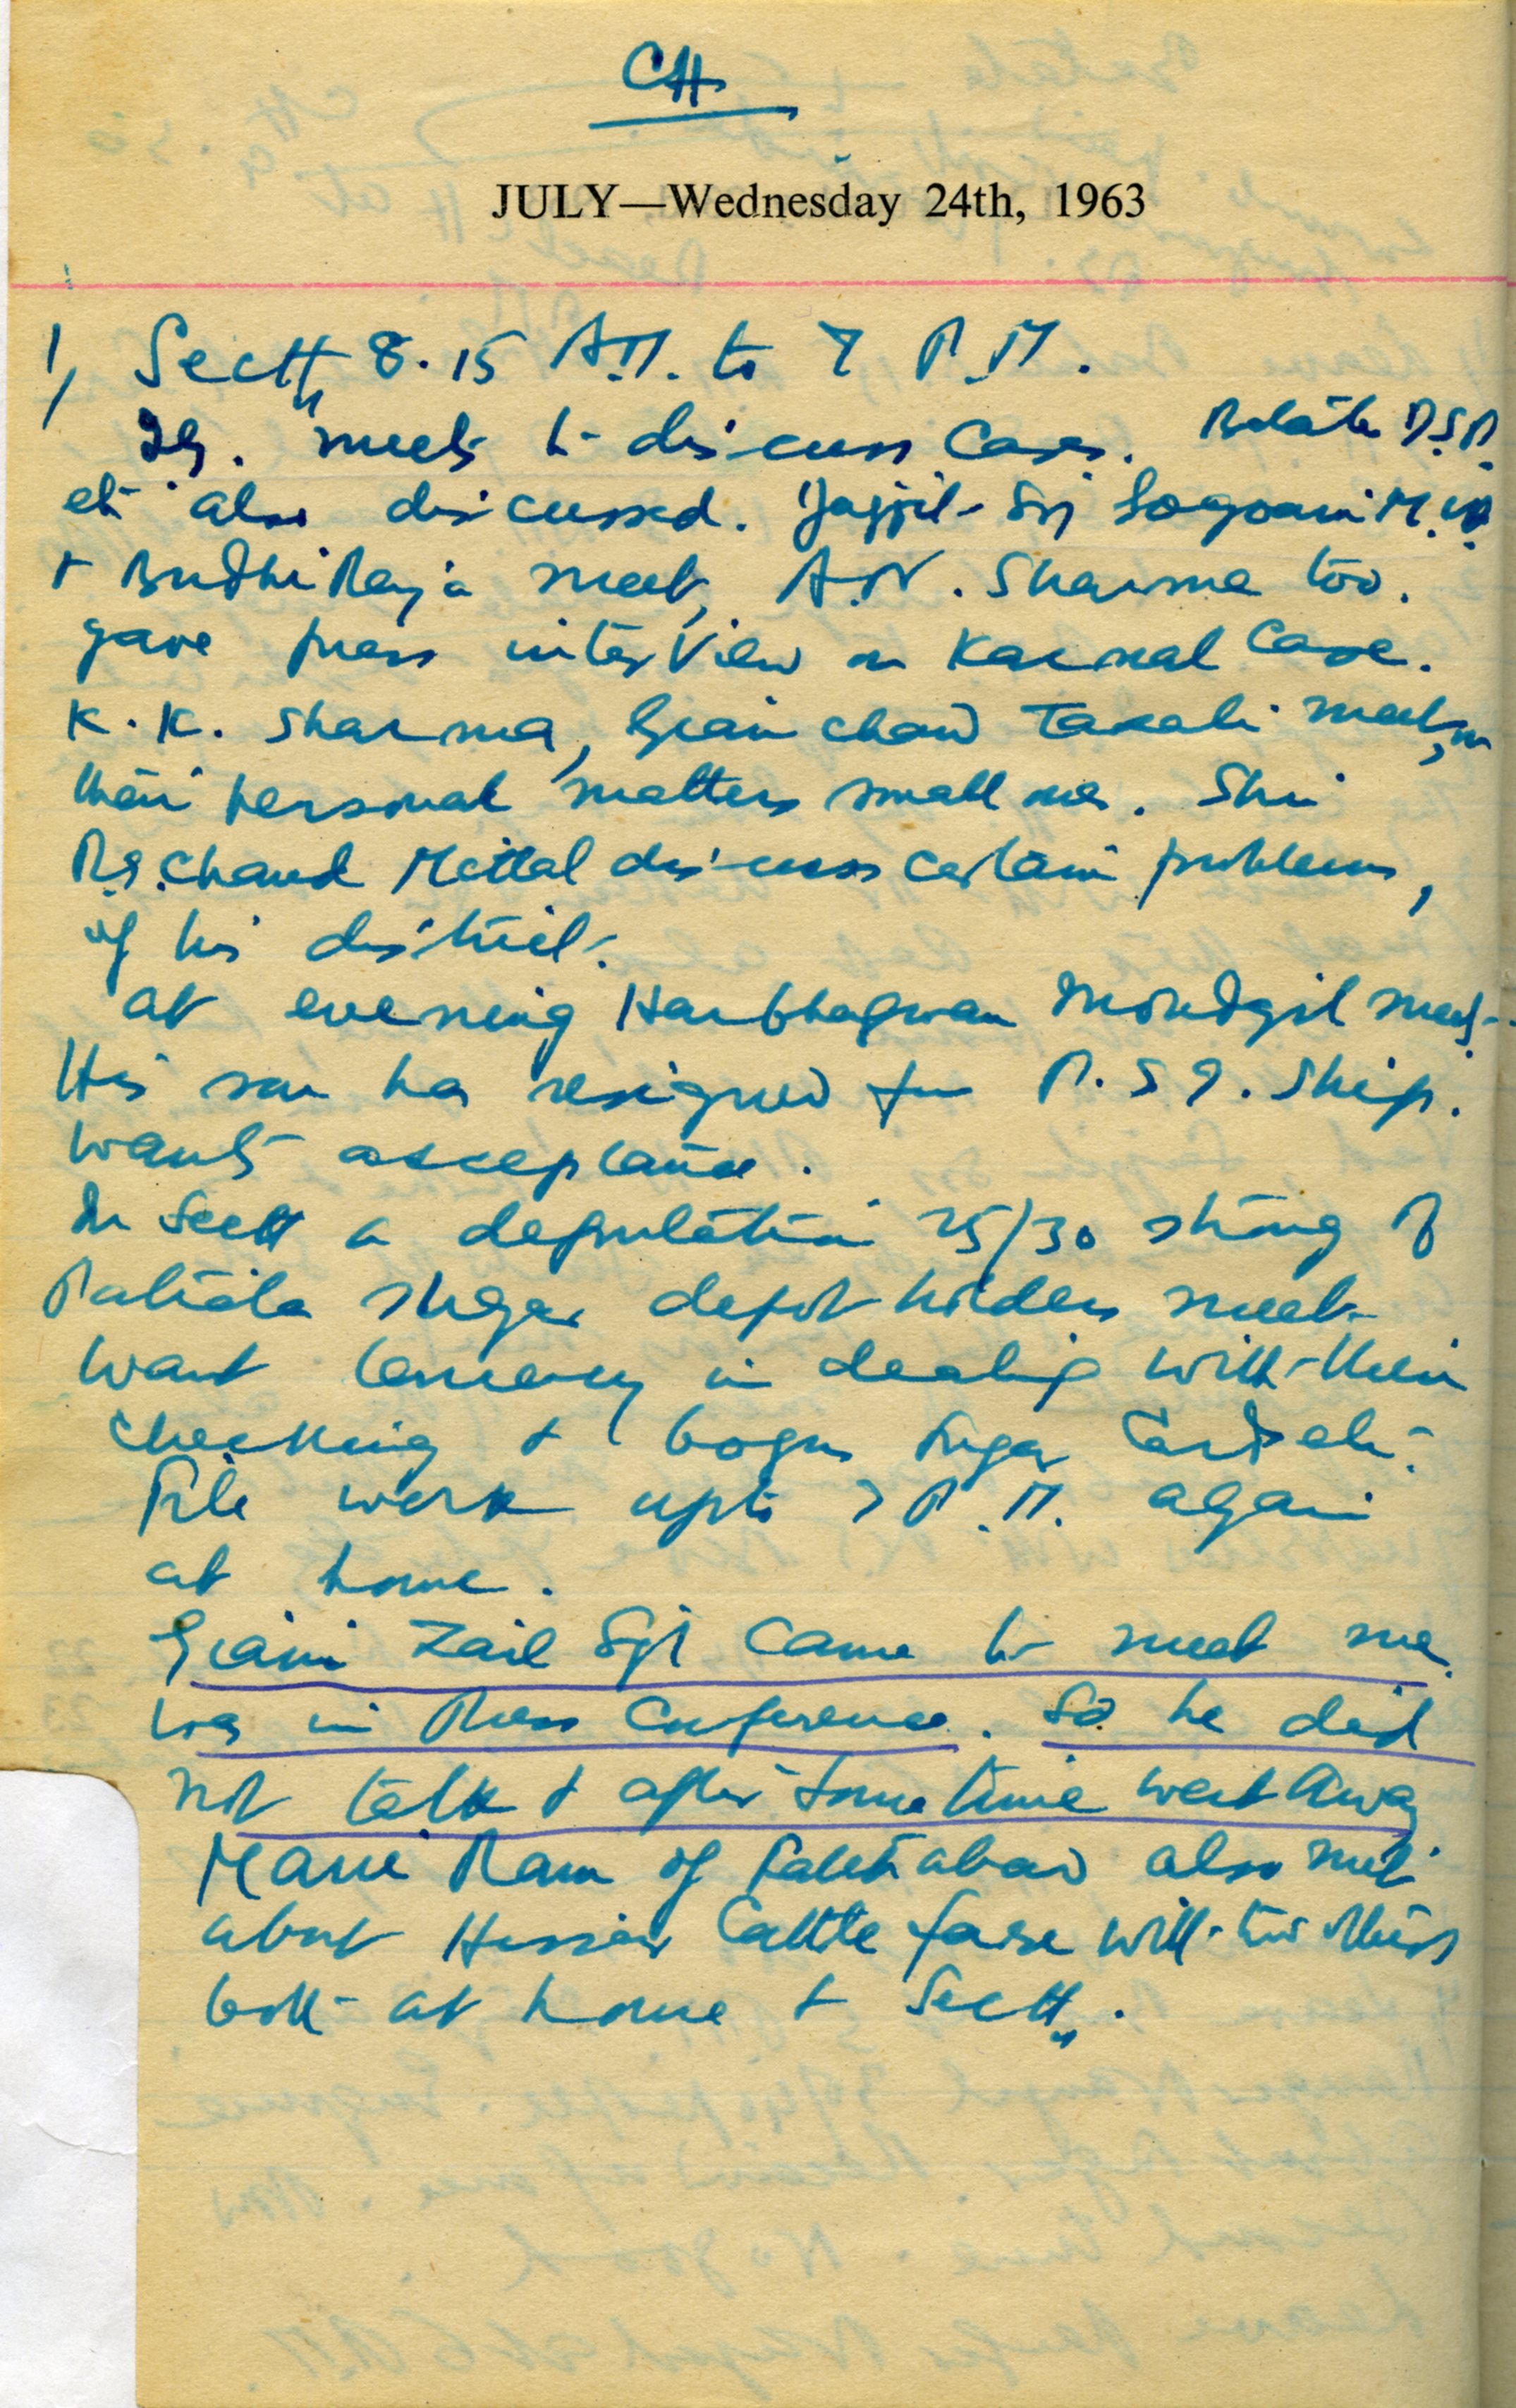 CH
JULY—Wednesday 24th, 1963
1, Sectt 8.15 A.M. to 7 P.M.
IG. meets to discuss cases. D.S.P.
etc also discussed. Jagjit Sgj
+ BudhiRaja meet, A.N. Sharma too.
gave press interview on Karnal Case.
K.K. Sharma, Gian Chand meet, on
their personal matters small ones. Shri
Chand Mittal discuss certain problems,
of his district.
at evening Harbhagwan Moudgil meet.
His son has resigned for P.S.I. Ship.
wants acceptance.
In Sectt a deputation 25/30 strong of
Patiala sugar depot holders meet
want leniency in dealing with their
checking + bogus sugar Cards etc.
File work upto 7 P.M. again
at home.
Giani Zail Sgh came to meet me.
was in Press Conference. So he did
not talk + after some time went away
Mani Ram of Fatehabad also met
about Hissar Cattle fare with two others
both at home + Sectt.